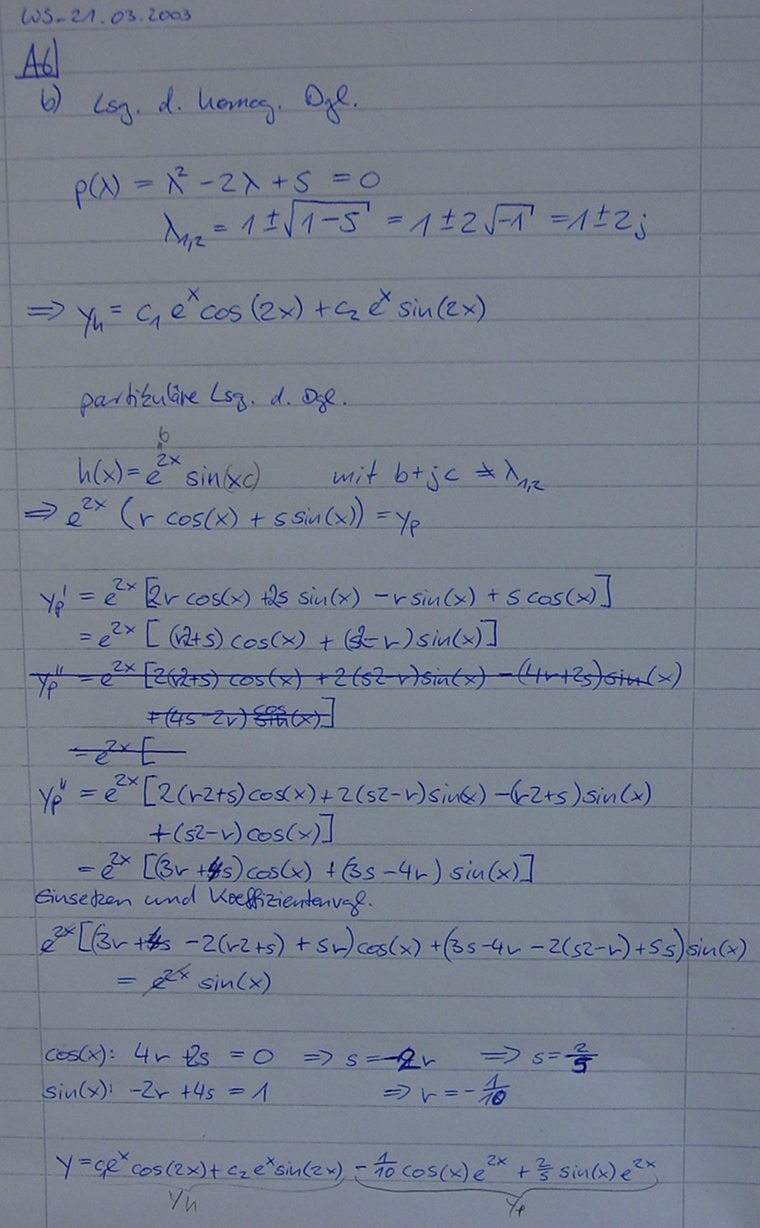 WS-21.03.2003
A6
b) Lsg. d. homog. Dgl.
p(λ) = λ² - 2λ + 5 = 0
λ₁,₂ = 1 ± √(1-5) = 1 ± 2√-1 = 1 ± 2j
⇒ yₕ = c₁ eˣ cos(2x) + c₂ eˣ sin(2x)
partikuläre Lsg. d. Dgl.
b
h(x) = e²ˣ sin(xc) mit b+jc ≠ λ₁,₂
⇒ e²ˣ (r cos(x) + s sin(x)) = yₚ
yₚ' = e²ˣ [2r cos(x) + 2s sin(x) - r sin(x) + s cos(x)]
= e²ˣ [(r2+s) cos(x) + (s2-r) sin(x)]
yₚ'' = e²ˣ [2(r2+s) cos(x) + 2(s2-r) sin(x) - (4r+2s) sin(x)
+ (4s-2r) cos(x)]
= e²ˣ [
yₚ'' = e²ˣ [2(r2+s) cos(x) + 2(s2-r) sin(x) - (r2+s) sin(x)
+ (s2-r) cos(x)]
= e²ˣ [(3r+4s) cos(x) + (3s-4r) sin(x)]
Einsetzen und Koeffizientenvgl.
e²ˣ [(3r+4s - 2(r2+s) + 5r) cos(x) + (3s-4r - 2(s2-r) + 5s) sin(x)
= e²ˣ sin(x)
cos(x): 4r + 2s = 0 ⇒ s = -2r ⇒ s = 2/5
sin(x): -2r + 4s = 1 ⇒ r = -1/10
y = c₁eˣ cos(2x) + c₂ eˣ sin(2x) - 1/10 cos(x) e²ˣ + 2/5 sin(x) e²ˣ
yₕ yₚ